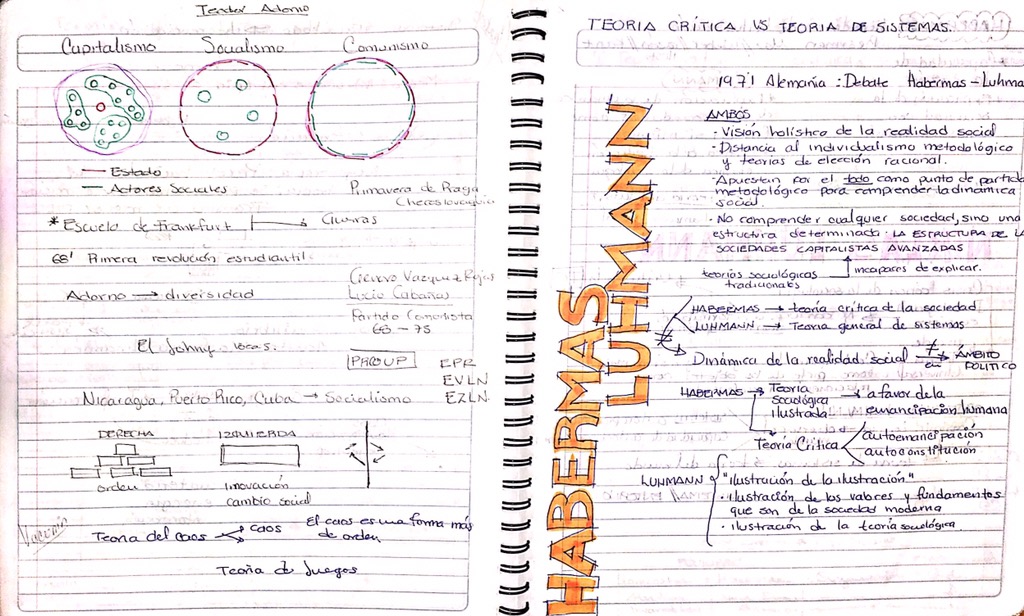 Teodor Adorno
Capitalismo Socialismo Comunismo
— Estado
— Actores Sociales
Primavera de Praga
Checoslovaquia
* Escuela de Frankfurt → Guerras
68' Primera revolución estudiantil
Adorno → diversidad
Genaro Vazquez Rojas
Lucio Cabañas
Partido Comunista
68 - 75
El Johny
PROCUP
EPR
EVLN
EZLN
Nicaragua, Puerto Rico, Cuba → Socialismo
DERECHA IZQUIERDA
orden innovación
cambio social
Teoria del caos caos El caos es una forma más
de orden
Teoría de Juegos
TEORIA CRÍTICA VS TEORIA DE SISTEMAS.
1971 Alemania : Debate Habermas - Luhma
HABERMAS
LUHMANN
AMBOS
· Visión holística de la realidad social
· Distancia al individualismo metodológico
y teorías de elección racional.
· Apuestan por el todo como punto de partida
metodológico para comprender la dinámica
social.
· No comprender cualquier sociedad, sino una
estructura determinada: LA ESTRUCTURA DE LA
SOCIEDADES CAPITALISTAS AVANZADAS
teorías sociológicas
tradicionales
incapaces de explicar.
HABERMAS → teoría crítica de la sociedad
LUHMANN → Teoría general de sistemas
≠
Dinámica de la realidad social ≠ en → ÁMBITO
POLITICO
HABERMAS → Teoría
Sociológica
Ilustrada
→ a favor de la
emancipación humana
Teoría Crítica
autoemancipación
autoconstitución
LUHMANN
· "Ilustración de la ilustración"
· Ilustración de los valores y fundamentos
que son de la sociedad moderna
· Ilustración de la teoría sociológica